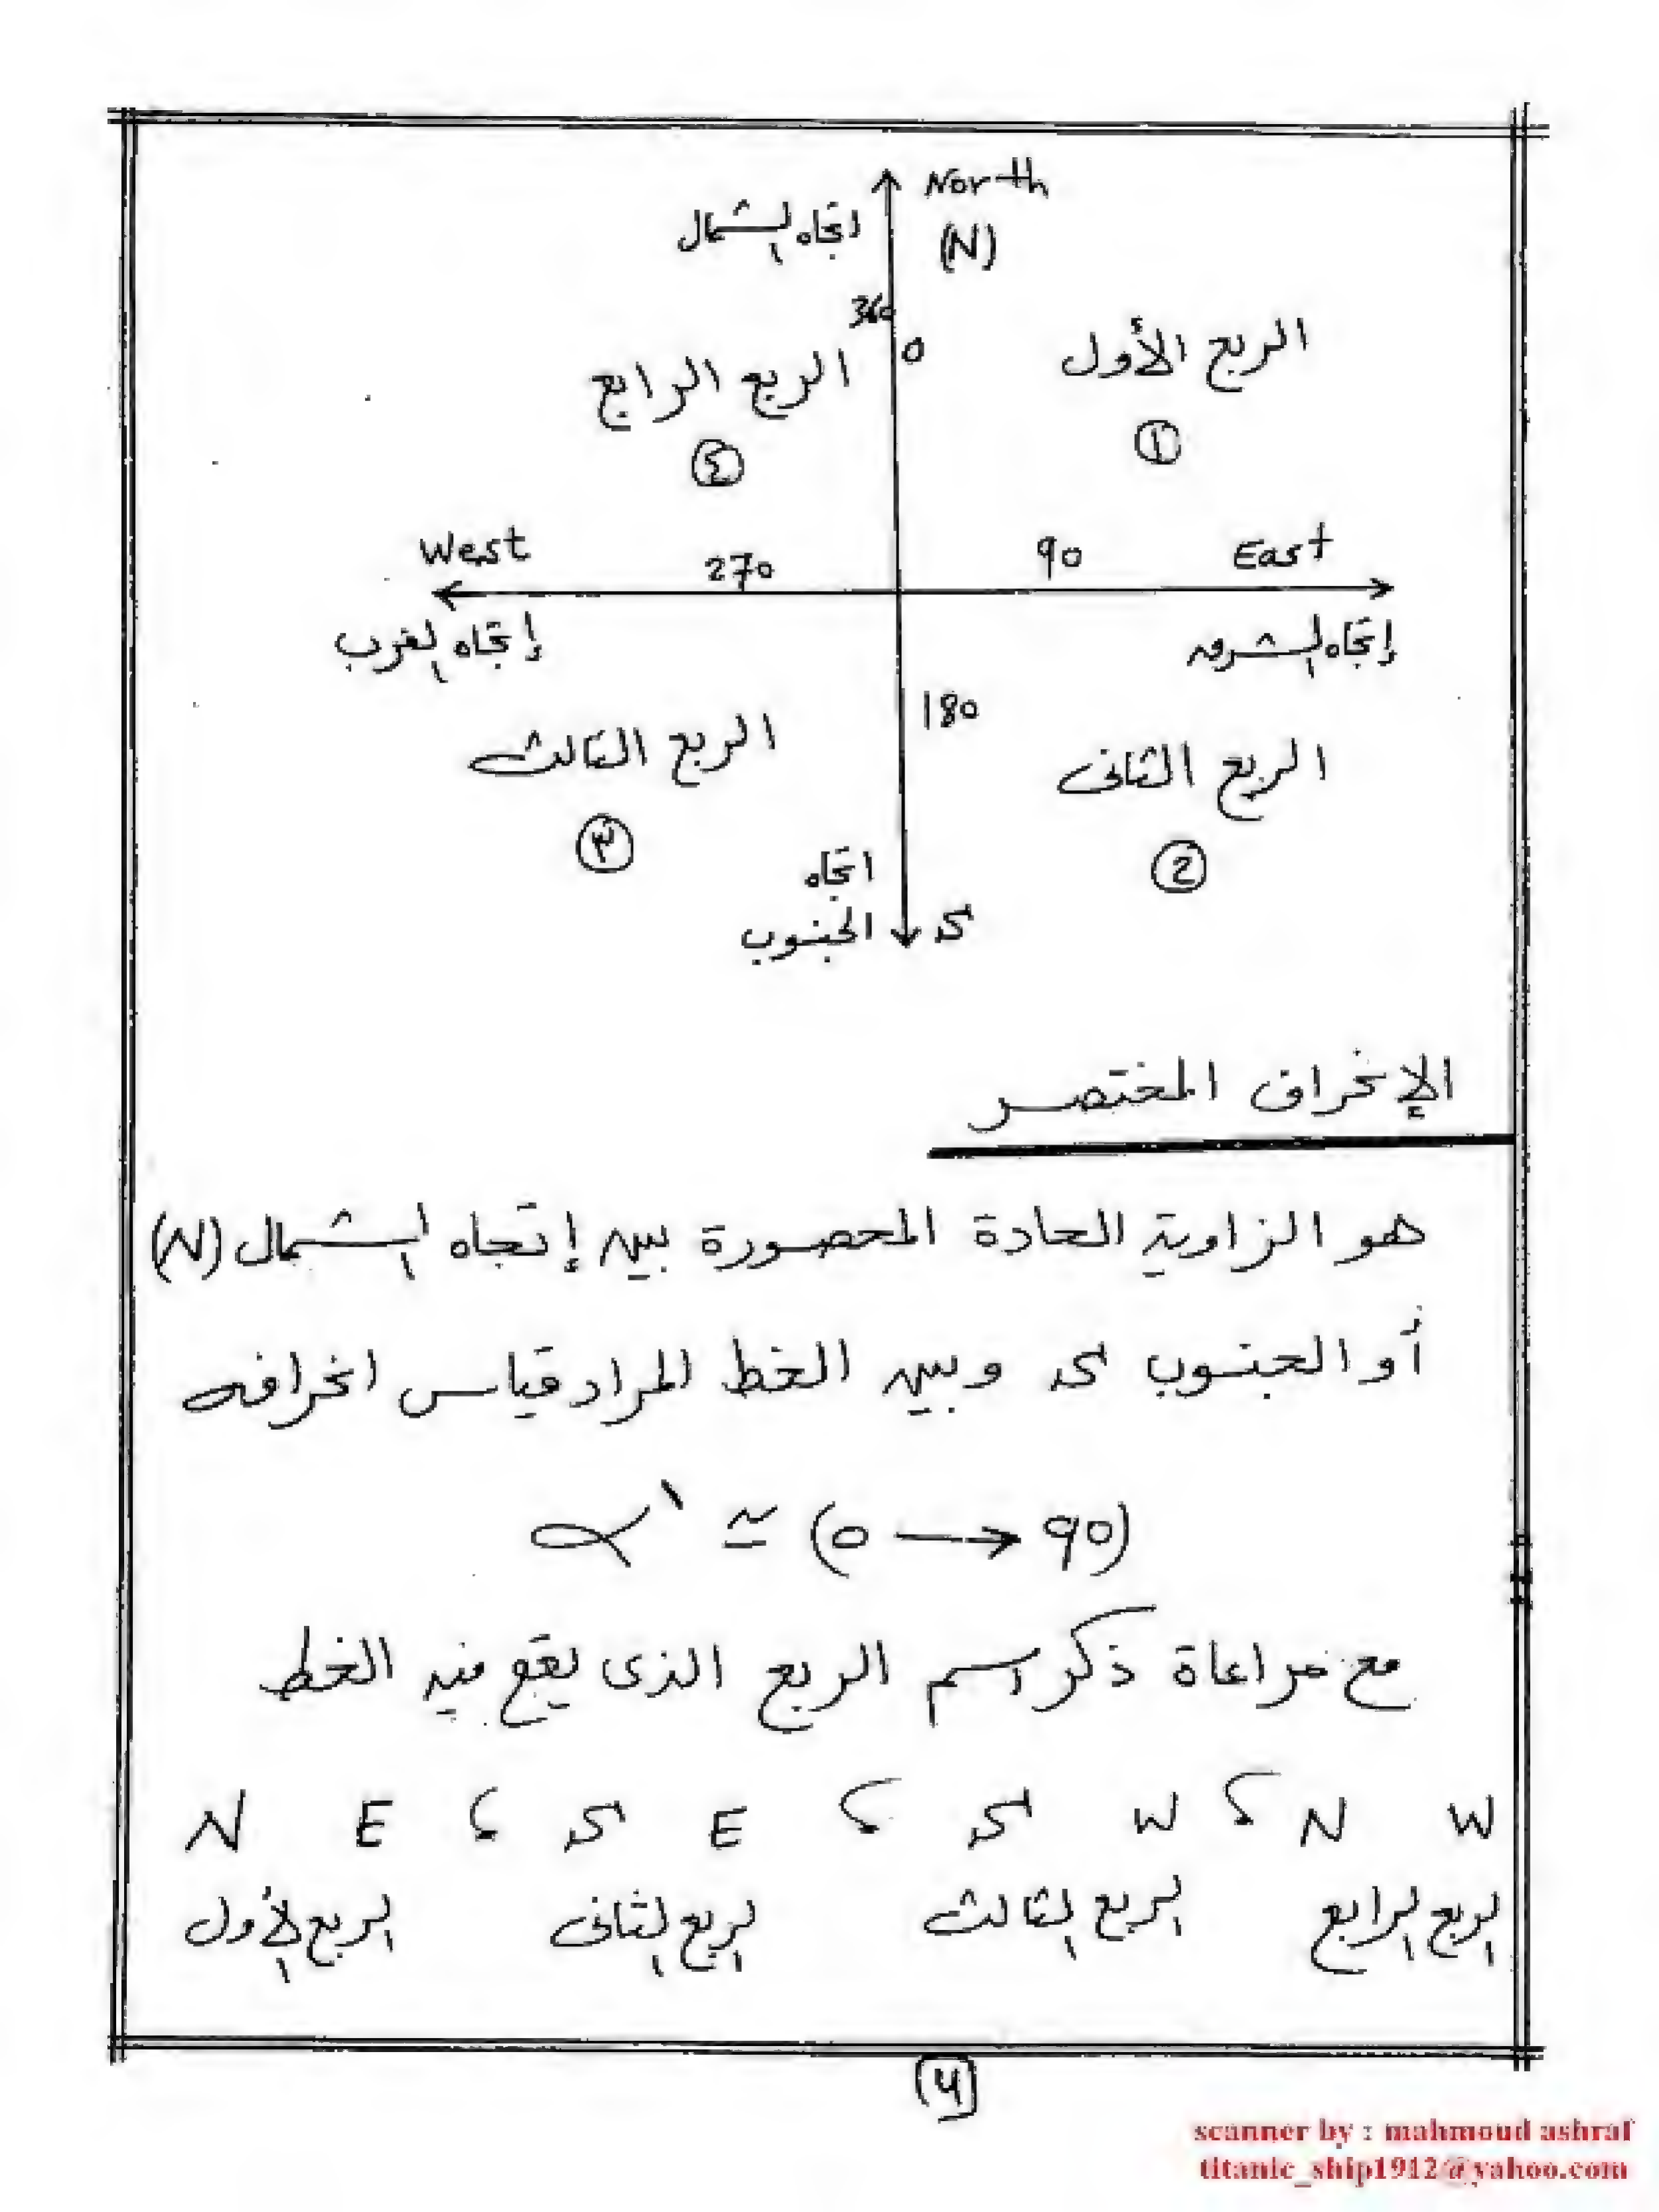 North
اتجاه الشمال (N)
360
0
الربع الأول
١
الربع الرابع
٤
West 270 90 East
إتجاه الغرب
إتجاه الشرق
180
الربع الثالث
٣
الربع الثانى
2
اتجاه
الجنوب S
الإنحراف المختصر
هو الزاوية الحادة المحصورة بين إتجاه الشمال (N)
أو الجنوب S وبين الخط المراد قياس انحرافه
α' ≃ (0 → 90)
مع مراعاة ذكر اسم الربع الذى يقع فيه الخط
N E ، S E ، S W ، N W
الربع الأول الربع الثانى الربع الثالث الربع الرابع
scanner by : mahmoud ashraf
titanic_ship1912@yahoo.com